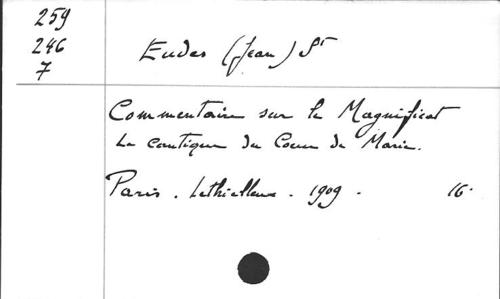 259
246
7
Eudes (Jean) St
Commentaire sur le Magnificat
Le cantique du Coeur de Marie.
Paris. Lethielleux. 1909. 16.